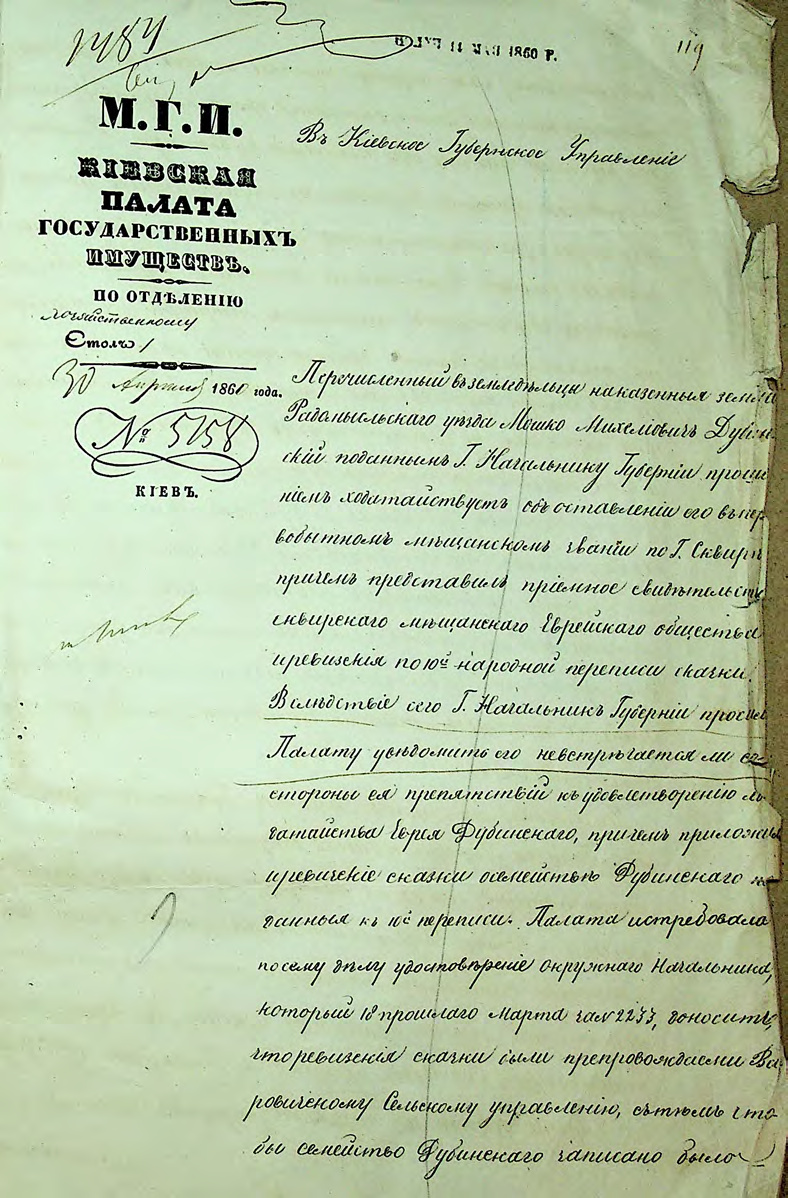 1484
119
11 МАЯ 1860 Г.
М.Г.И.
КІЕВСКАЯ
ПАЛАТА
ГОСУДАРСТВЕННЫХЪ
ИМУЩЕСТВЪ.
ПО ОТДѢЛЕНІЮ
Хозяйственному
Столъ 1
30 Апреля 1860 года.
№ 5158
КІЕВЪ.
Въ Кіевское Губернское Управленіе
Перечисленный въ земледѣльцы на казенныя земли
Радомысльскаго уѣзда Мошко Михеліовичъ Дубин-
скій поданнымъ Г. Начальнику Губерніи проше
ніемъ ходатайствуетъ объ оставленіи его въ пер
вобытномъ мѣщанскомъ званіи по Г. Сквирѣ
причемъ представилъ пріемное свидѣтельство
сквирскаго мѣщанскаго Еврейскаго общества
и ревизскія по 10й народной переписи сказки.
Вслѣдствіе сего Г. Начальникъ Губерніи просилъ
Палату увѣдомить его невстрѣчается ли со
стороны ея препятствій къ удовлетворенію хо-
датайства Еврея Дубинскаго, причемъ приложилъ
и ревизскіе сказки осемействѣ Дубинскаго по
данныя къ 10й переписи. Палата истребовала
по сему дѣлу удостовѣреніе Окружнаго Начальника,
который 18 прошлаго Марта за № 2233, доноситъ,
что ревизскія сказки были препровождаемы Ва-
ровичскому Сельскому управленію, съ тѣмъ что
бы семейство Дубинскаго записано было